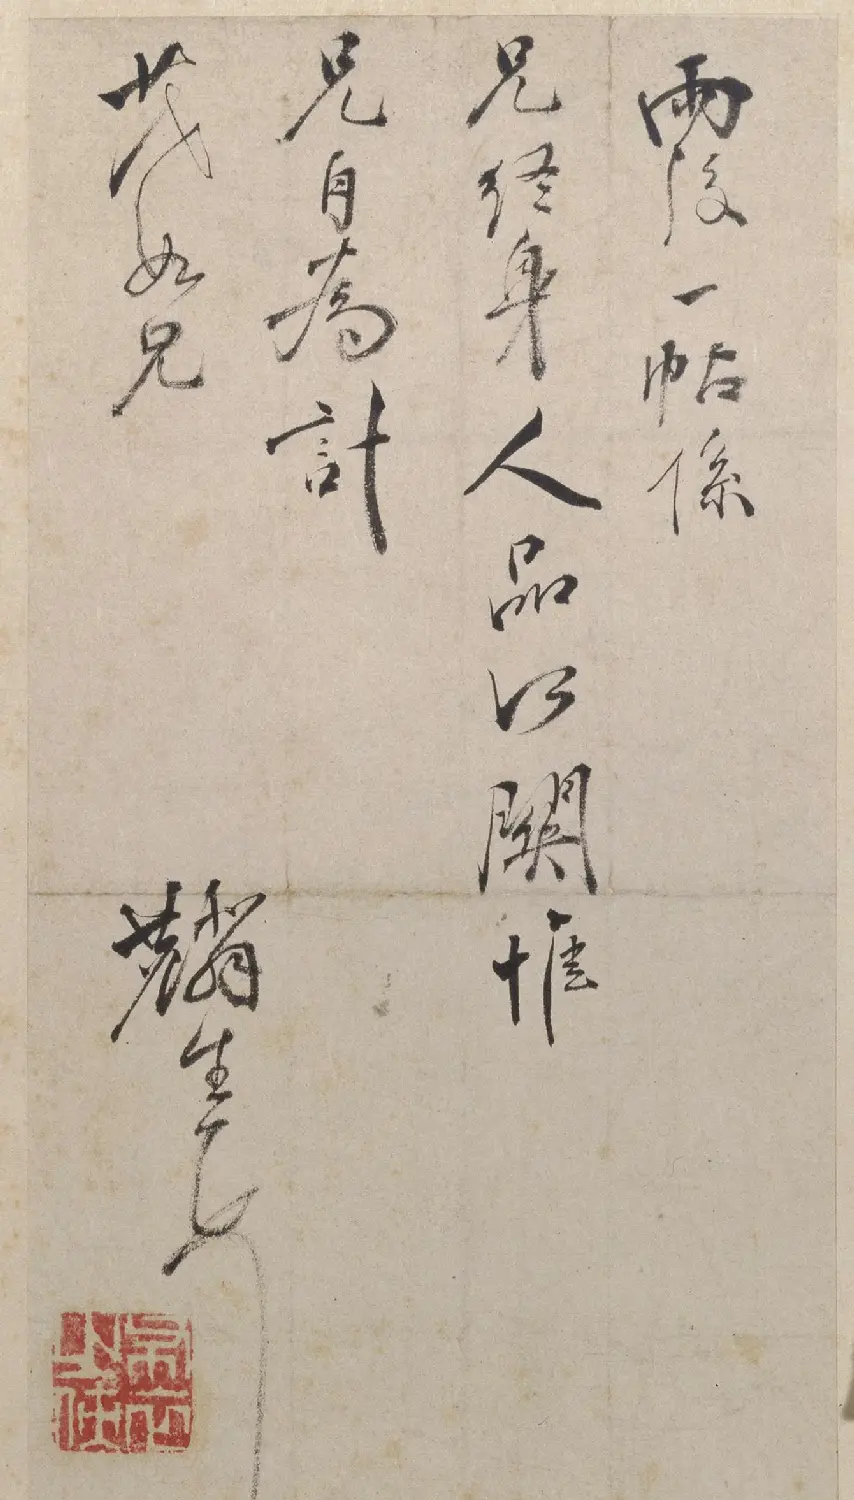 雨後一帖係
兄終身人品所關惟
兄自為計
茂如兄
麟生